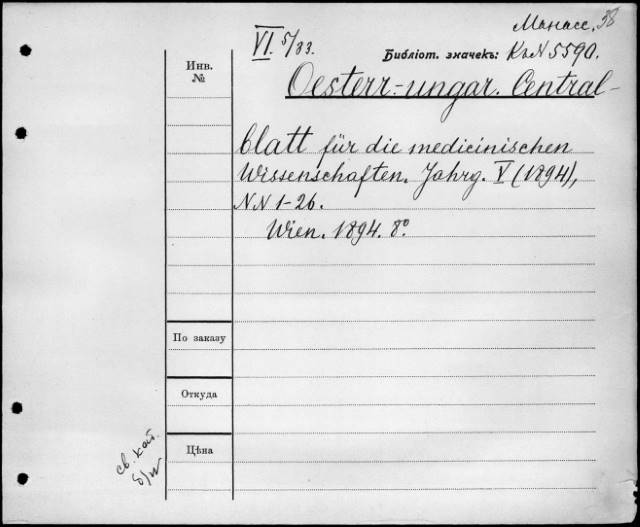 Манасс. 38
VI. 5/33.
Библіот. значекъ: К№ 5590.
Инв.
№
Oesterr.-ungar. Central-
blatt für die medicinischen
Wissenschaften. Jahrg. V (1894),
NN 1-26.
Wien. 1894. 8°.
По заказу
Откуда
Цѣна
св. кат.